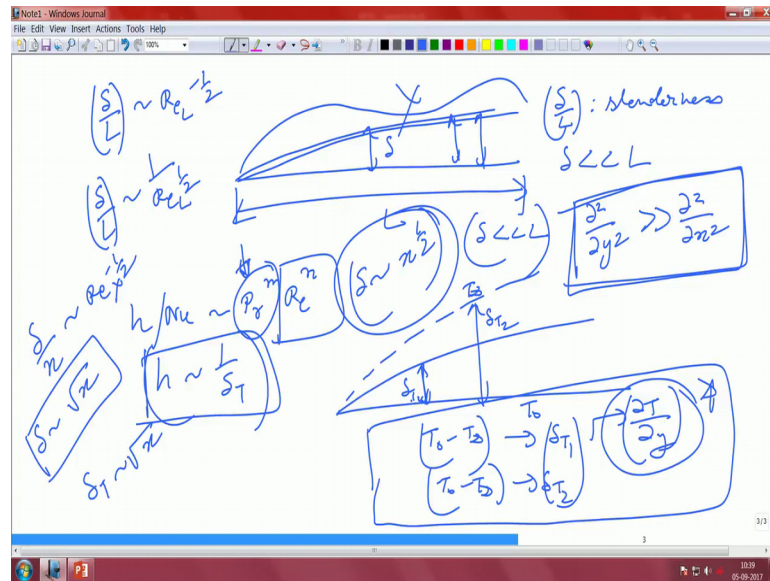 Note1 - Windows Journal
File Edit View Insert Actions Tools Help
100%
B I
(δ/L) ~ Re_L^(-1/2)
(δ/L) ~ 1/Re_L^(1/2)
δ
L
(δ/L) : slenderness
δ << L
∂²/∂y² >> ∂²/∂x²
(δ << L)
δ ~ x^(1/2)
δ/x ~ Re_x^(-1/2)
h/Nu ~ Pr^m Re^n
h ~ 1/δ_T
δ ~ √x
δ_T ~ √x
T∞
δ_T2
δ_T1
T₀
(T₀ - T∞) → (δ_T1
(T₀ - T∞) → δ_T2)
(∂T/∂y)
3/3
3
10:39
05-09-2017